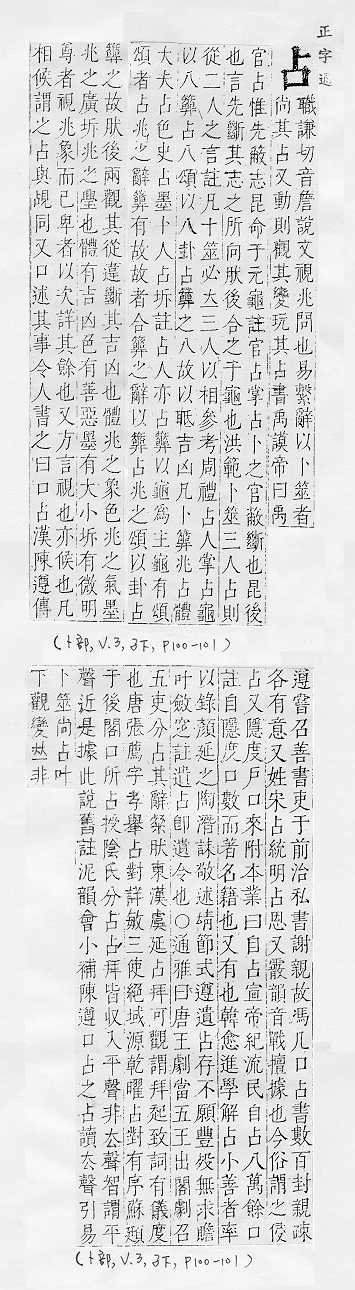 正字通
占
職謙切音詹說文視兆問也易繫辭以卜筮者
尚其占又動則觀其變玩其占書禹謨帝曰禹
官占惟先蔽志昆命于元龜註官占掌占卜之官蔽斷也昆後
也言先斷其志之所向肰後合之于龜也洪範卜筮三人占則
從二人之言註凡卜筮必立三人以相參考周禮占人掌占龜
以八簭占八頌以八卦占簭之八故以眡吉凶凡卜簭兆占體
大夫占色史占墨卜人占坼註占人亦占簭以龜爲主龜有頌
頌者占兆之辭簭有故故者合簭之辭以簭占兆之頌以卦占
簭之故肰後兩觀其從違斷其吉凶也體兆之象色兆之氣墨
兆之廣坼兆之璺也體有吉凶色有善惡墨有大小坼有微明
尊者視兆象而已卑者以次詳其餘也又方言視也亦候也凡
相候謂之占與覘同又口述其事令人書之曰口占漢陳遵傳
(卜部, V.3, 子下, P100-101)
遵嘗召善書吏于前治私書謝親故馮几口占書數百封親疎
各有意又姓宋占統明占恩又霰韻音戰擅據也今俗謂之侵
占又隱度戶口來附本業曰自占宣帝紀流民自占八萬餘口
註自隱度口數而著名籍也又有也韓愈進學解占小善者率
以錄顏延之陶潛誄敬述靖節式遵遺占存不願豐歿無求贍
叶斂窆註遺占卽遺令也○通雅曰唐王劇當五王出閣劇召
五吏分占其辭粲肰東漢虞延占拜可觀謂拜起致詞有儀度
也唐張薦字孝舉占對詳敏三使絕域源乾曜占對有序蘇頲
于後閤口所占授陰氏分占占拜皆收入平聲非厺聲智謂平
聲近是據此說舊註泥韻會小補陳遵口占之占讀厺聲引易
卜筮尚占叶
下觀變𠀤非
(卜部, V.3, 子下, P100-101)